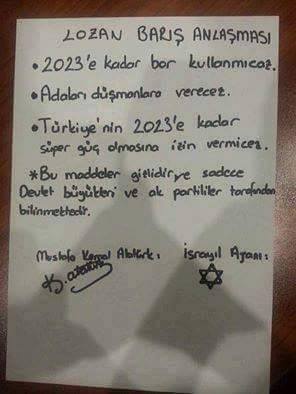 LOZAN BARIŞ ANLAŞMASI
• 2023'e kadar bor kullanmıcaz.
• Adaları düşmanlara verecez.
• Türkiye'nin 2023'e kadar
süper güç olmasına izin vermicez.
*Bu maddeler gizlidir ve sadece
Devlet büyükleri ve ak partililer tarafından
bilinmektedir.
Mustafa Kemal Atatürk: İsrayil Ajanı:
K. Atatürk